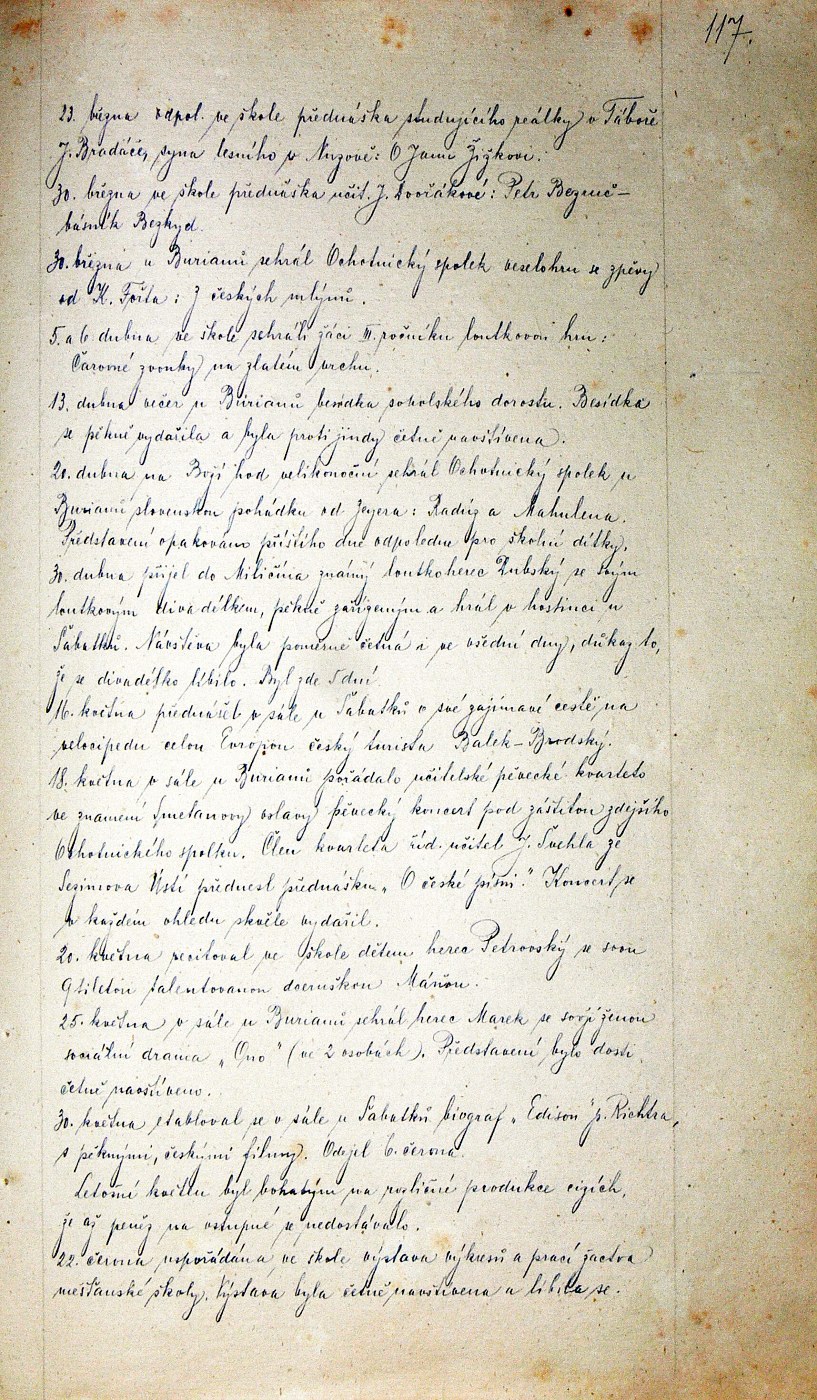 117.
23. března odpol. ve škole přednáška studujícího reálky v Táboře
J. Bradáče, syna lesního v : O Janu Žižkovi.
30. března ve škole přednáška učit. J. Dvořákové: Petr Bezruč –
básník Bezkyd.
30. března u Burianů sehrál Ochotnický spolek veselohru se zpěvy
od K. Fořta: Z českých mlýnů.
5. a 6. dubna ve škole sehráli žáci III. ročníku loutkovou hru:
Čarovné zvonky na zlatém vrchu.
13. dubna večer u Burianů besídka sokolského dorostu. Besídka
se pěkně vydařila a byla proti jindy četně navštívena.
20. dubna na Boží hod velikonoční sehrál Ochotnický spolek u
Burianů slovenskou pohádku od Zeyera: Radúz a Mahulena.
Představení opakováno příštího dne odpoledne pro školní dítky.
30. dubna přijel do Miličína známý loutkoherec Dubský se svým
loutkovým divadélkem, pěkně zařízeným a hrál v hostinci u
Šabatků. Návštěva byla poměrně četná i ve všední dny, důkaz to,
že se divadélko líbilo. Byl zde 5 dní.
16. května přednášel v sále u Šabatků o své zajímavé cestě na
velocipedu celou Evropou český turista Balek-Brodský.
18. května v sále u Burianů pořádalo učitelské pěvecké kvarteto
ve znamení Smetanovy oslavy pěvecký koncert pod záštitou zdejšího
Ochotnického spolku. Člen kvarteta říd. učitel J. Švehla ze
Sezimova Ústí přednesl přednášku „O české písni." Koncert se
v každém ohledu skvěle vydařil.
20. května recitoval ve škole dětem herec Petrovský se svou
9tiletou talentovanou dceruškou Máňou.
25. května v sále u Burianů sehrál herec Marek se svojí ženou
sociální drama „Ono" (ve 2 osobách). Představení bylo dosti
četně navštíveno.
30. května etabloval se v sále u Šabatků biograf „Edison" p. Richtra,
s pěknými, českými filmy. Odejel 6. června.
Letošní květen byl bohatým na rozličné produkce cizích,
že až peněz na vstupné se nedostávalo.
22. června uspořádána ve škole výstava výkresů a prací žactva
měšťanské školy. Výstava byla četně navštívena a líbila se.